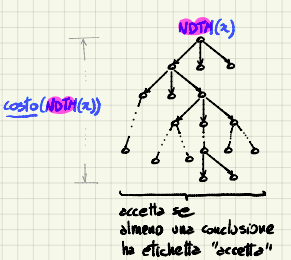 NDTM(x)
costo(NDTM(x))
accetta se
almeno una conclusione
ha etichetta "accetta"